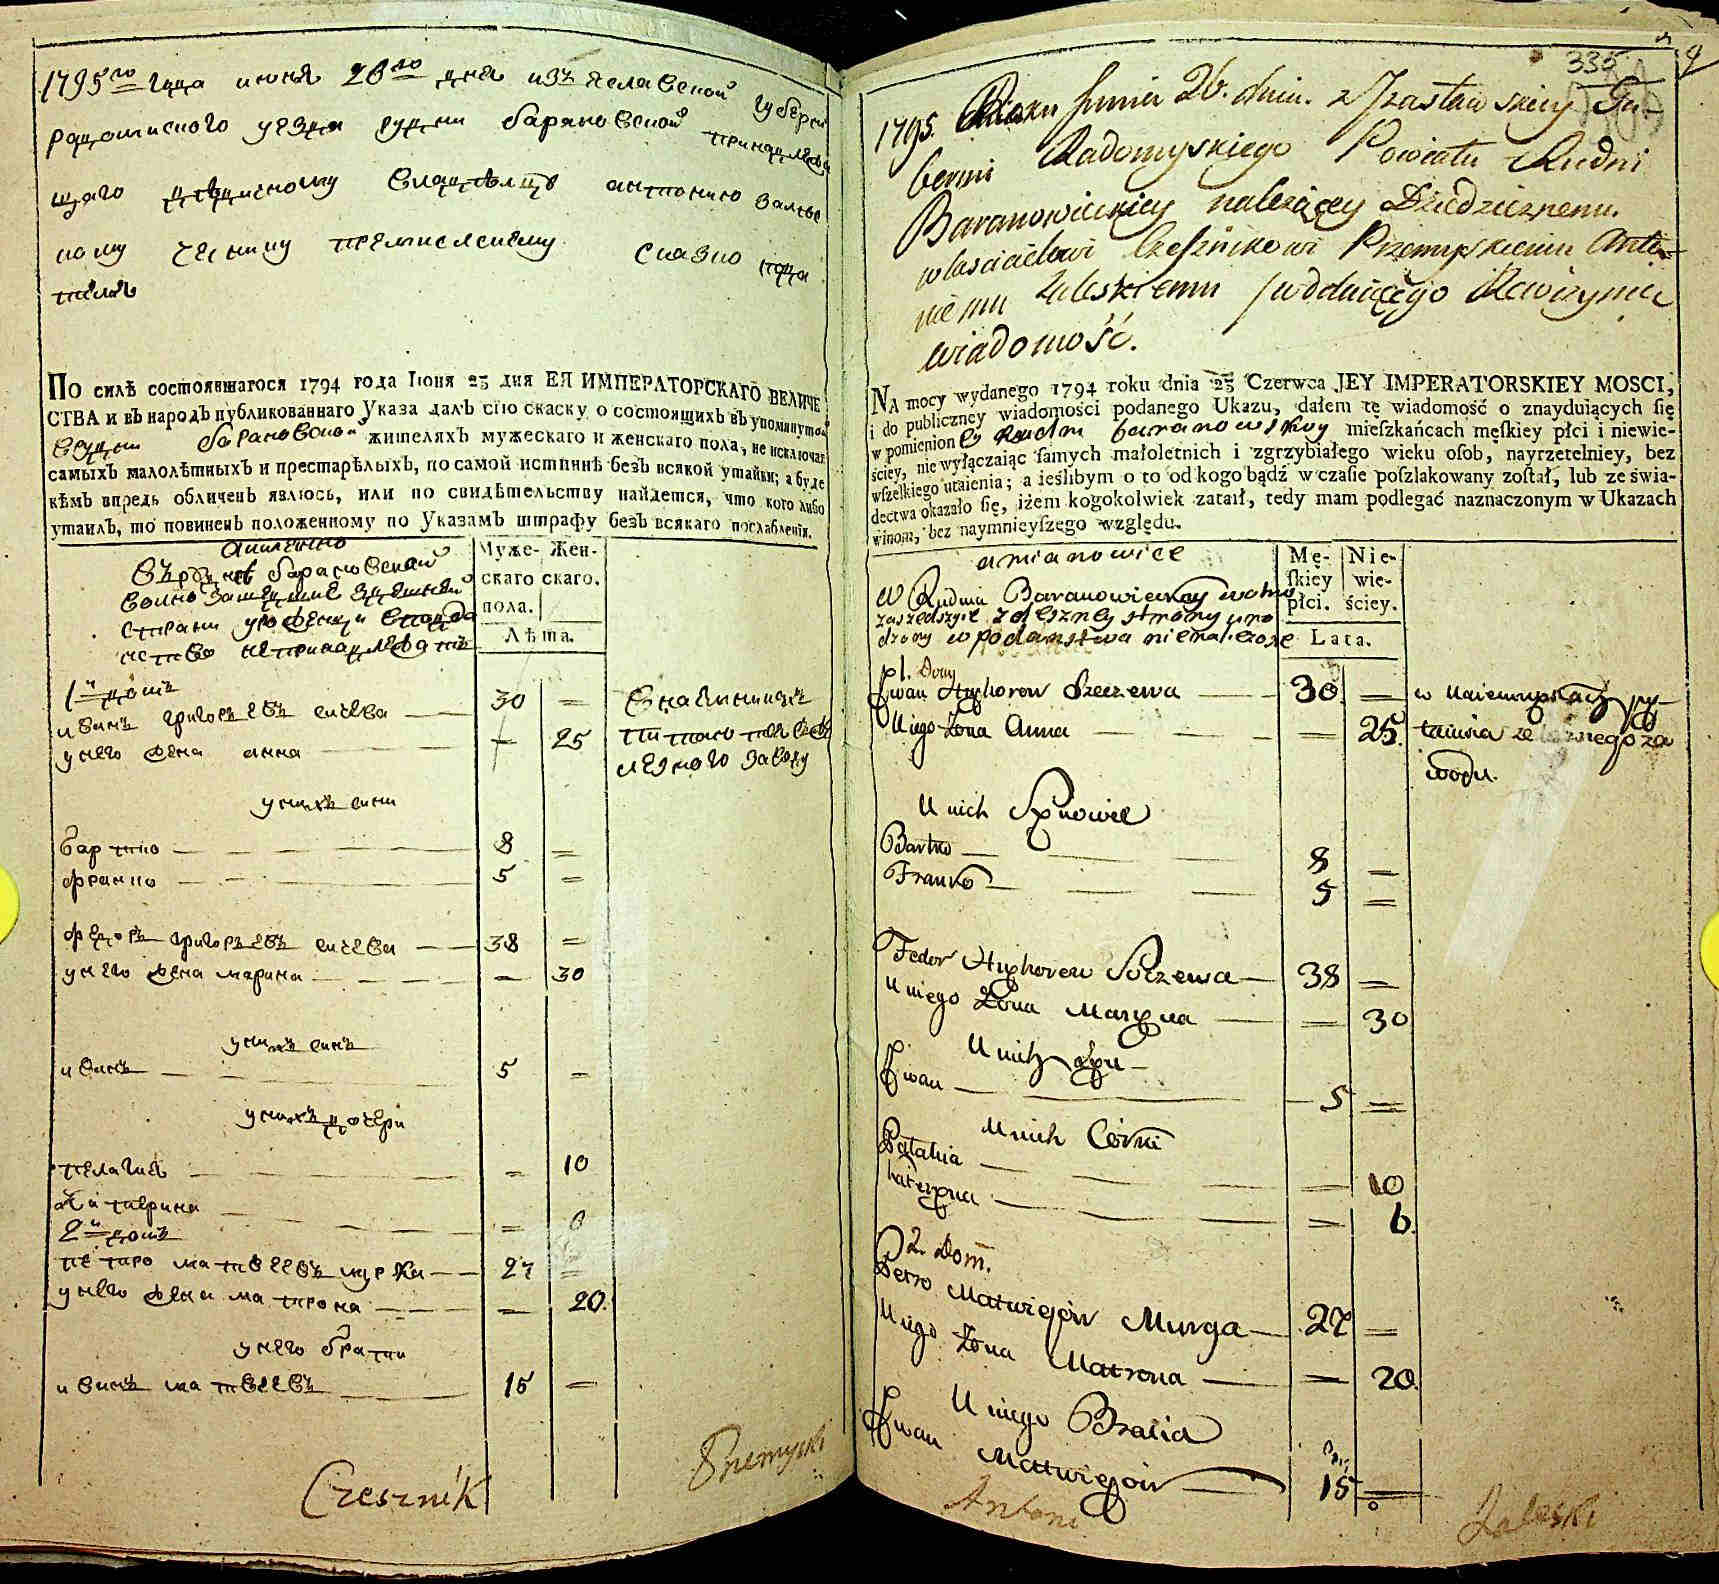 1795го года июня 26го дня изъ Изеславской губерни
радомиского уезда рудни барановской принадлежа
щаго дѣдичному владѣлцѣ антонию залес
кому чеснику пемислскому сказко пода
тѣля
ПО силѣ состоявшагося 1794 года Іюня 23 дня ЕЯ ИМПЕРАТОРСКАГО ВЕЛИЧЕ
СТВА и въ народъ публикованнаго Указа далъ сію скаску о состоящихъ въ упомянутой
врудни барановской жителяхъ мужескаго и женскаго пола, не исключая
самыхъ малолѣтныхъ и престарѣлыхъ, по самой истиннѣ безъ всякой утайки; а буде
кѣмъ впредь обличенъ явлюсь, или по свидѣтельству найдется, что кого либо
утаилъ, то повиненъ положенному по Указамъ штрафу безъ всякаго послабленія.
аимѣнно
Муже- Жен-
въруднѣ барановской
скаго скаго.
волно зашедшие здешней
пола.
страни
Лѣта.
непринадлежатъ
1й домъ
иванъ григорьевъ сичева 30 =
унего жена анна — 25
унихъ сини
бартко 8 =
франко 5 =
федоръ григорьевъ сичева 38 =
унего жена марина = 30
унихъ синъ
иванъ 5 =
унихъ дочери
пелагия = 10
катерина = 6
2й домъ
петро матвеевъ мурга 27 =
унего жена матрона = 20.
унего братия
иванъ матвеевъ 15 =
Czesznik
Przemyski
335
9
1795. Roku Junia 26. dnia. z Jzasławskiey Gu-
berni Radomyskiego Powiatu Rudni
Baranowickiey należącey Dziedzicznemu.
włascicielowi Czesznikowi Przemyskiemu Anto-
niemu Zaleskiemu Rewizyina
wiadomość.
NA mocy wydanego 1794 roku dnia 23 Czerwca JEY IMPERATORSKIEY MOSCI,
i do publiczney wiadomości podanego Ukazu, dałem tę wiadomość o znayduiących się
w pomienioney Rudni baranowskey mieſzkańcach męſkiey płci i niewie-
ściey, nie wyłączaiąc ſamych małoletnich i zgrzybiałego wieku osob, nayrzetelniey, bez
wſzelkiego utaienia; a ieślibym o to od kogo bądź w czaſie poſzlakowany został, lub ze świa-
dectwa okazało ſię, iżem kogokolwiek zataił, tedy mam podlegać naznaczonym w Ukazach
winom, bez naymnieyſzego względu.
amianowice
Mę- Nie-
W Rudnia Baranowickey wolno
ſkiey wie-
zaszedszyie z oleszney strony uro
płci. ściey.
dzony w podanstwa nienalezące
Lata.
1. Dom
Jwan Hryhorew Szeczewa 30. =
Uniego Żona Anna = 25.
wodu.
U nich Synowie
Bartko 8 =
Franko 5 =
Fedor Hryhorew Szeczewa 38 =
Uniego Żona Maryna = 30
U nich Syn
Jwan 5 =
U nich Córki
Pelahia = 10
Kateryna = 6
2. Dom.
Petro Matwiejów Murga 27 =
Uniego Żona Matrona = 20.
U niego Bracia
Jwan Matwiejów 15 =
Antoni
Zaleski